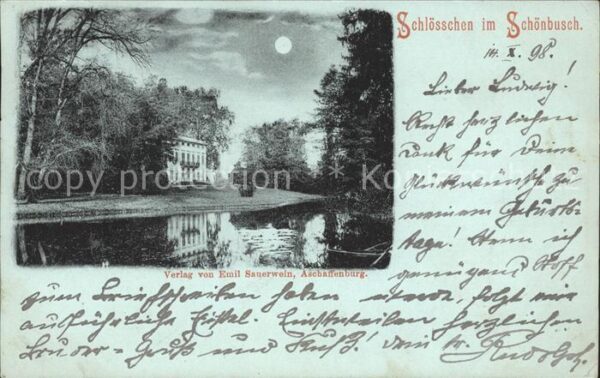 Schlösschen im Schönbusch.
14. X. 98.
Lieber Ludwig!
Recht herzlichen
Dank für Deine
Glückwünsche zu
meinem Geburts-
tage! Wenn ich
genügend Stoff
zum Briefschreiben haben werde, folgt eine
ausführliche Epistel. Einstweilen herzlichen
Bruder-Gruß und Kuß! Dein tr. Rudolf.
Verlag von Emil Sauerwein, Aschaffenburg.
copy protection